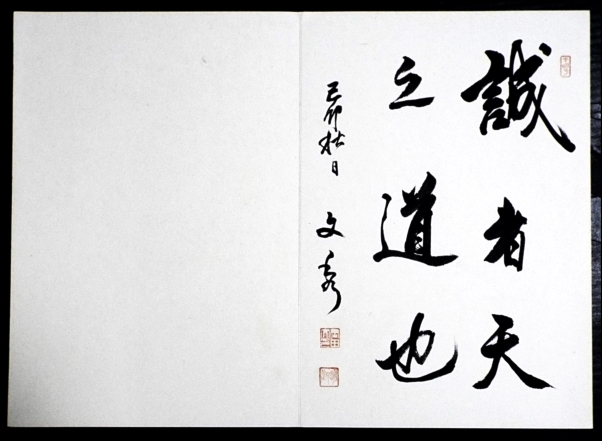 誠者天
之道也
己卯秋日
文秀